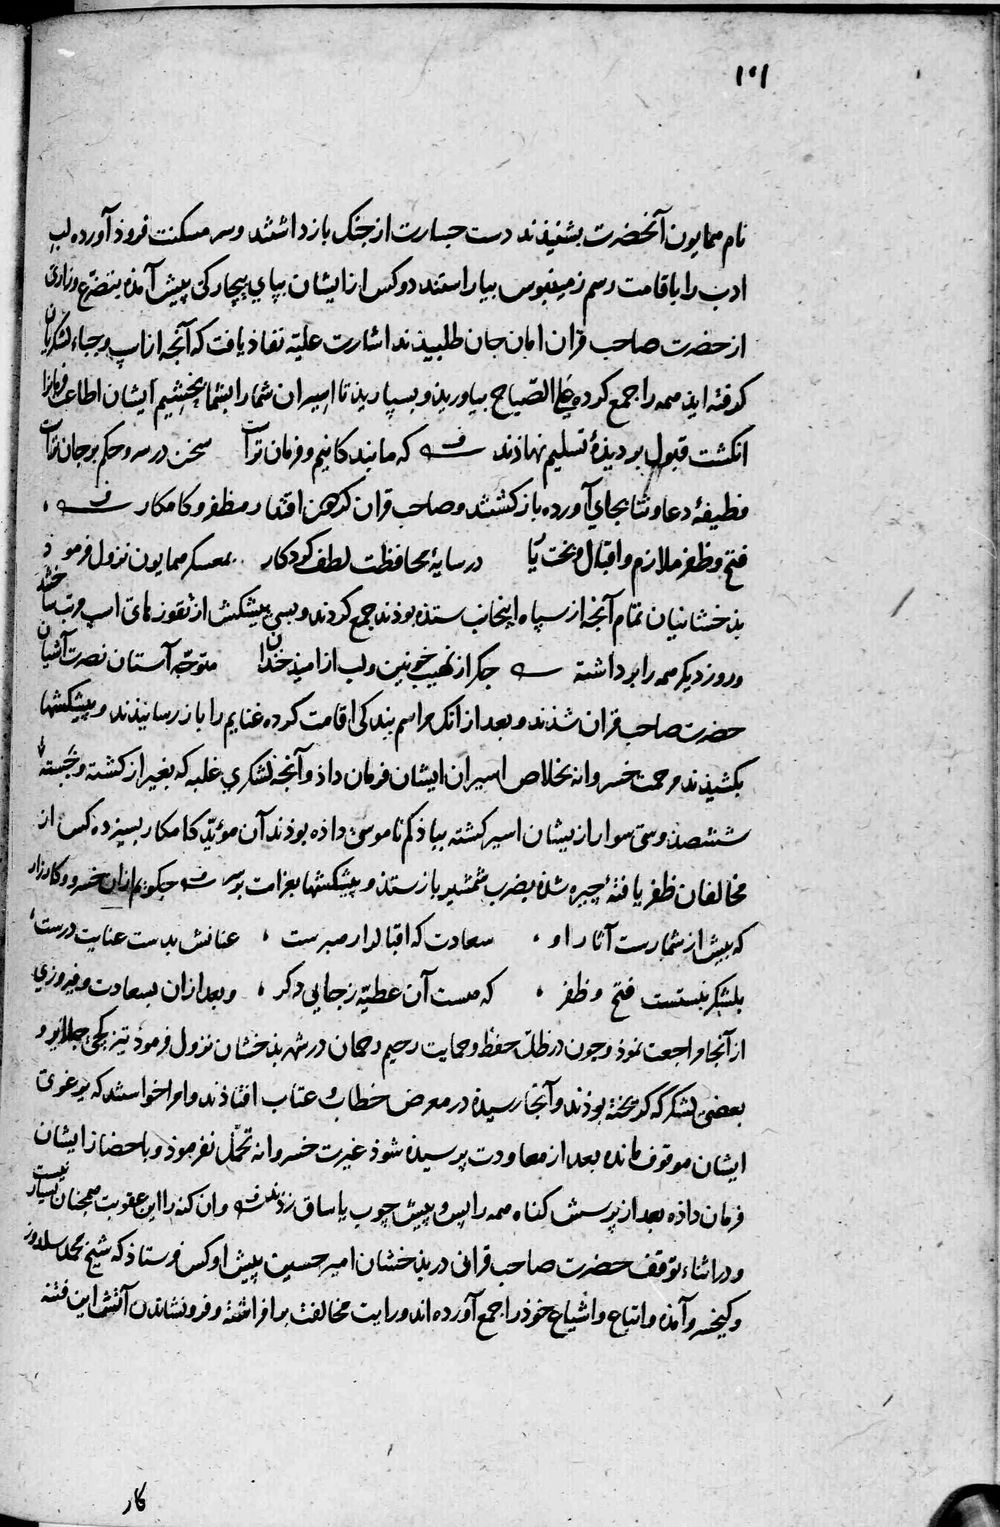 ١٠١
نام همایون آنحضرت بشنیذند دست جسارت از جنک باز داشتند وسر مسکنت فروذ آورده لب
ادب را باقامت رسم زمینبوس بیاراستند دو کس از ایشان بپای بیچارکی پیش آمذه بتضرّع وزاری
از حضرت صاحب قران امان جان طلبیذند اشارت علیّه نفاذ یافت که آنچه از اسپ وجباء لشکریان
کرفته ایذ همه را جمع کرده علی الصّباح بیاورینذ و بسپارینذ تا اسیران شما را بشما بخشیم ایشان اطاعت فرمانرا
انکشت قبول بر دیذهٔ تسلیم نهاذند که ما بندکانیم و فرمان تراست سخن در سر و حکم بر جان تراست
وظیفهٔ دعا و ثنا بجای آورده باز کشتند و صاحب قران کردون اقتدار مظفر و کامکار
فتح و ظفر ملازم و اقبال و بخت یار در سایهٔ محافظت لطف کردکار بمعسکر همایون نزول فرموذ
بذخشانیان تمام آنچه از سپاه اینجانب ستذه بوذند جمع کردند و بسی پیشکش از تقوزهای اسپ مرتب ساختند
و روز دیکر همه را برداشته جکر از نهیب خونین و لب از امیذ خندان متوجّه آستان نصرت آشیان
حضرت صاحب قران شذند و بعد از آنک مراسم بندکی اقامت کرده غنایم را باز رسانیذند و پیشکشها
بکشیذند مرحمت خسروانه بخلاص اسیران ایشان فرمان داذ و آنچه لشکری غلبه که بغیر از کشته و خسته
ششصذ و سی سوار از یشان اسیر کشته بباذ کم ناموسی داذه بوذند آن مؤیّد کامکار بسیزده کس از
مخالفان ظفر یافتهٔ چیره شذه بضرب شمشیر باز ستذ و پیشکشها بغرامت بر سر چکویم ازان خسرو کارزار
که بیش از شمارست آثار او سعادت که اقبال را رهبرست عنانش بدست عنایت درست
بلشکر نبستست فتح و ظفر که هست آن عطیّه ز جایی دکر و بعد ازان بسعادت و فیروزی
از آنجا مراجعت نموذ و چون در ظلّ حفظ و حمایت رحیم رحمان در شهر بذخشان نزول فرموذ تیزکجی جلایر و
بعضی لشکر که کریخته بوذند و آنجا رسیذه در معرض خطاب و عتاب افتاذند و امرا خواستند که یرغوی
ایشان موقوف مانده بعد از معاودت پرسیذه شوذ غیرت خسروانه تحمّل نفرموذ و باحضار ایشان
فرمان داذه بعد از پرسش کناه همه را پس و پیش چوب یاساق زذند وان کنه را این عقوبت همچنان بسیار نیست
و در اثناء توقف حضرت صاحب قرانی در بذخشان امیر حسین پیش او کس فرستاذ که شیخ محمّد سلدوز
و کیخسرو آمذه و اتباع و اشیاع خوذ را جمع آورده اند و رایت مخالفت بر افراشته و فرو نشاندن آتش این فتنه
کار